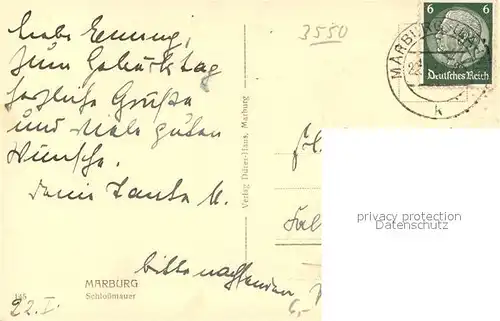 3550
Liebe Emmy,
zum Geburtstag
herzliche Grüße
und viele guten
Wünsche.
Deine Tante M.
bitte nachsenden
22. I.
MARBURG
Schloßmauer
145
Verlag Dürer-Haus, Marburg
6 6
Deutsches Reich
MARBURG (LAHN)
k
privacy protection
Datenschutz